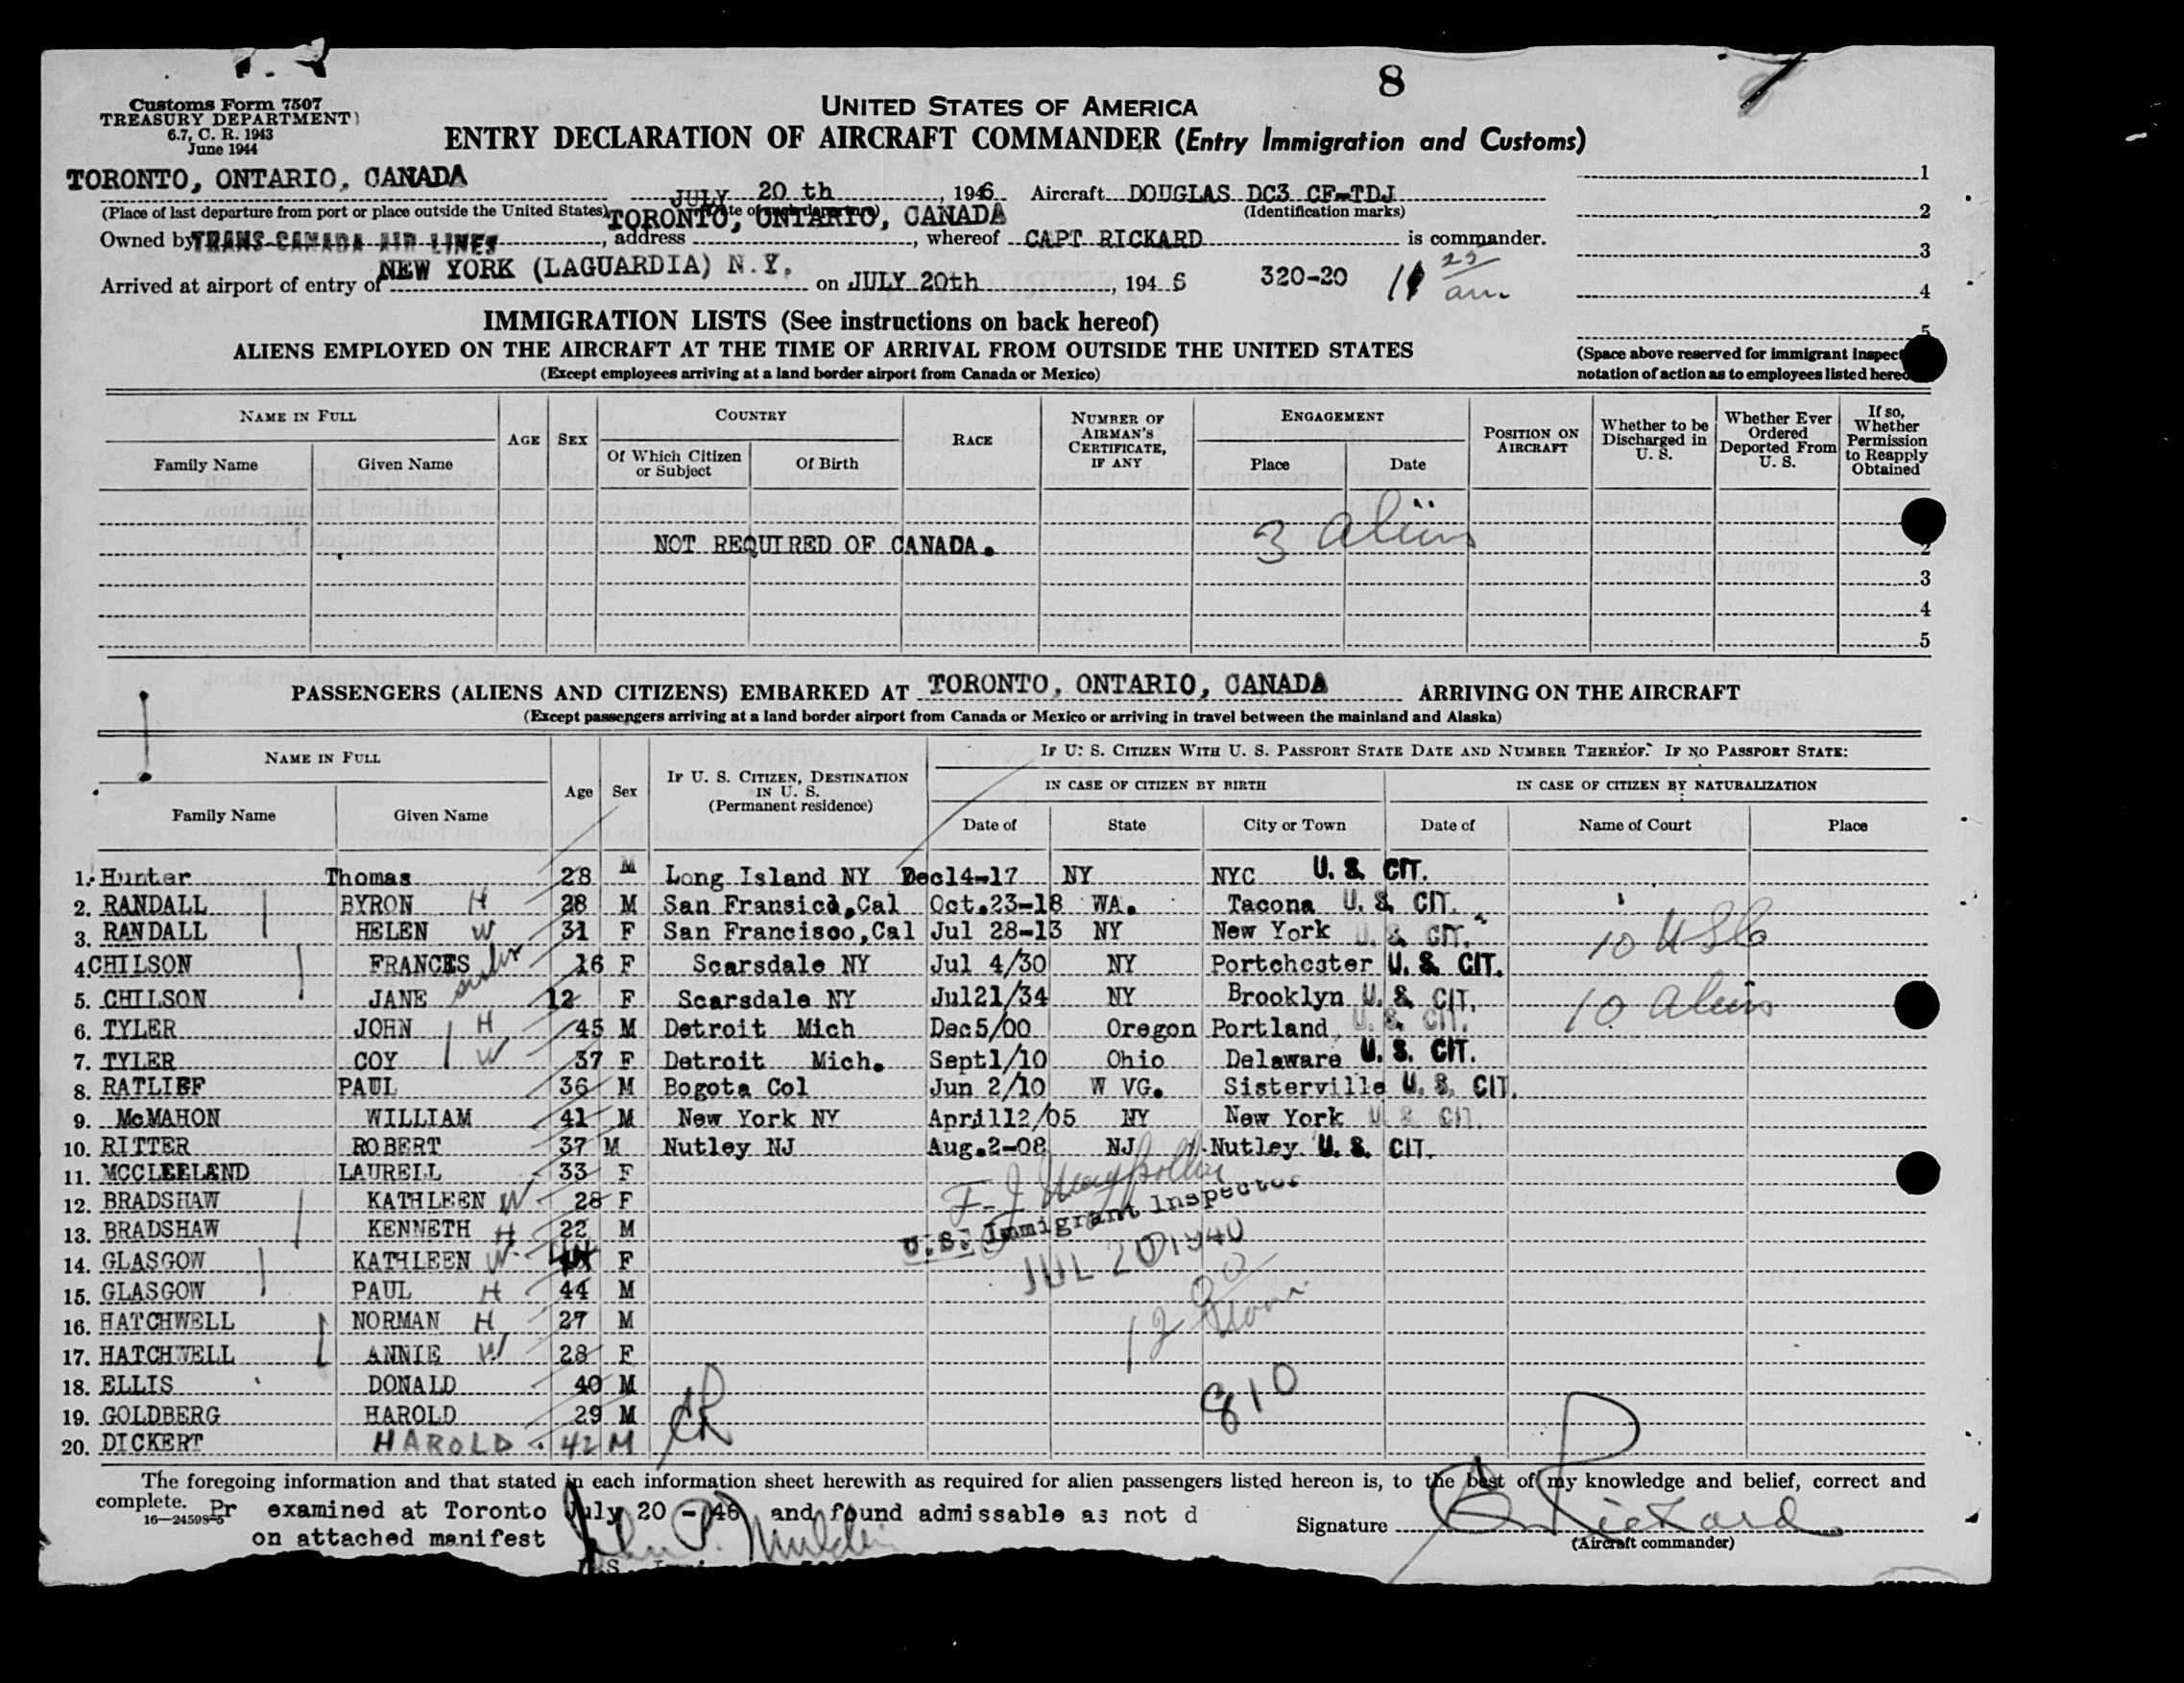 8
Customs Form 7507
TREASURY DEPARTMENT
6.7, C. R. 1943
June 1944
UNITED STATES OF AMERICA
ENTRY DECLARATION OF AIRCRAFT COMMANDER (Entry Immigration and Customs)
TORONTO, ONTARIO, CANADA JULY 20 th, 1946 Aircraft DOUGLAS DC3 CF-TDJ 1
(Place of last departure from port or place outside the United States) (Identification marks) 2
TORONTO, ONTARIO, CANADA
Owned by TRANS-CANADA AIR LINES, address, whereof CAPT RICKARD is commander. 3
Arrived at airport of entry of NEW YORK (LAGUARDIA) N.Y. on JULY 20th, 1946 320-20 11 25 am. 4
5
IMMIGRATION LISTS (See instructions on back hereof)
ALIENS EMPLOYED ON THE AIRCRAFT AT THE TIME OF ARRIVAL FROM OUTSIDE THE UNITED STATES
(Space above reserved for immigrant inspec
(Except employees arriving at a land border airport from Canada or Mexico)
notation of action as to employees listed here
NAME IN FULL
Family Name Given Name
AGE SEX
COUNTRY
Of Which Citizen or Subject Of Birth
RACE
NUMBER OF AIRMAN'S CERTIFICATE, IF ANY
ENGAGEMENT
Place Date
POSITION ON AIRCRAFT
Whether to be Discharged in U. S.
Whether Ever Ordered Deported From U. S.
If so, Whether Permission to Reapply Obtained
NOT REQUIRED OF CANADA. 3 aliens 2
3
4
5
PASSENGERS (ALIENS AND CITIZENS) EMBARKED AT TORONTO, ONTARIO, CANADA ARRIVING ON THE AIRCRAFT
(Except passengers arriving at a land border airport from Canada or Mexico or arriving in travel between the mainland and Alaska)
NAME IN FULL
Family Name Given Name
Age Sex
IF U. S. CITIZEN, DESTINATION IN U. S. (Permanent residence)
IF U. S. CITIZEN WITH U. S. PASSPORT STATE DATE AND NUMBER THEREOF. IF NO PASSPORT STATE:
IN CASE OF CITIZEN BY BIRTH IN CASE OF CITIZEN BY NATURALIZATION
Date of State City or Town Date of Name of Court Place
1. Hunter Thomas 28 M Long Island NY Dec14-17 NY NYC U. S. CIT.
2. RANDALL BYRON H 28 M San Fransico, Cal Oct.23-18 WA. Tacona U. S. CIT.
3. RANDALL HELEN W 31 F San Francisoo, Cal Jul 28-13 NY New York U. S. CIT. 10 USC
4 CHILSON FRANCES 16 F Scarsdale NY Jul 4/30 NY Portchester U. S. CIT.
5. CHILSON JANE sister 12 F Scarsdale NY Jul21/34 NY Brooklyn U. S. CIT. 10 aliens
6. TYLER JOHN H 45 M Detroit Mich Dec5/00 Oregon Portland U. S. CIT.
7. TYLER COY W 37 F Detroit Mich. Sept1/10 Ohio Delaware U. S. CIT.
8. RATLIEF PAUL 36 M Bogota Col Jun 2/10 W VG. Sisterville U. S. CIT.
9. McMAHON WILLIAM 41 M New York NY April12/05 NY New York U S CIT.
10. RITTER ROBERT 37 M Nutley NJ Aug.2-08 NJ Nutley U. S. CIT.
11. MCCLEELAND LAURELL 33 F
12. BRADSHAW KATHLEEN W 28 F
U.S. Immigrant Inspector
13. BRADSHAW KENNETH H 22 M
JUL 20
14. GLASGOW KATHLEEN W F
15. GLASGOW PAUL H 44 M
16. HATCHWELL NORMAN H 27 M
12 00
17. HATCHWELL ANNIE W 28 F
18. ELLIS DONALD 40 M
810
19. GOLDBERG HAROLD 29 M
20. DICKERT HAROLD 42 M
The foregoing information and that stated in each information sheet herewith as required for alien passengers listed hereon is, to the best of my knowledge and belief, correct and
complete. Pr examined at Toronto July 20 - 46 and found admissable as not d
16—24598-5
on attached manifest
Signature Rickard
(Aircraft commander)